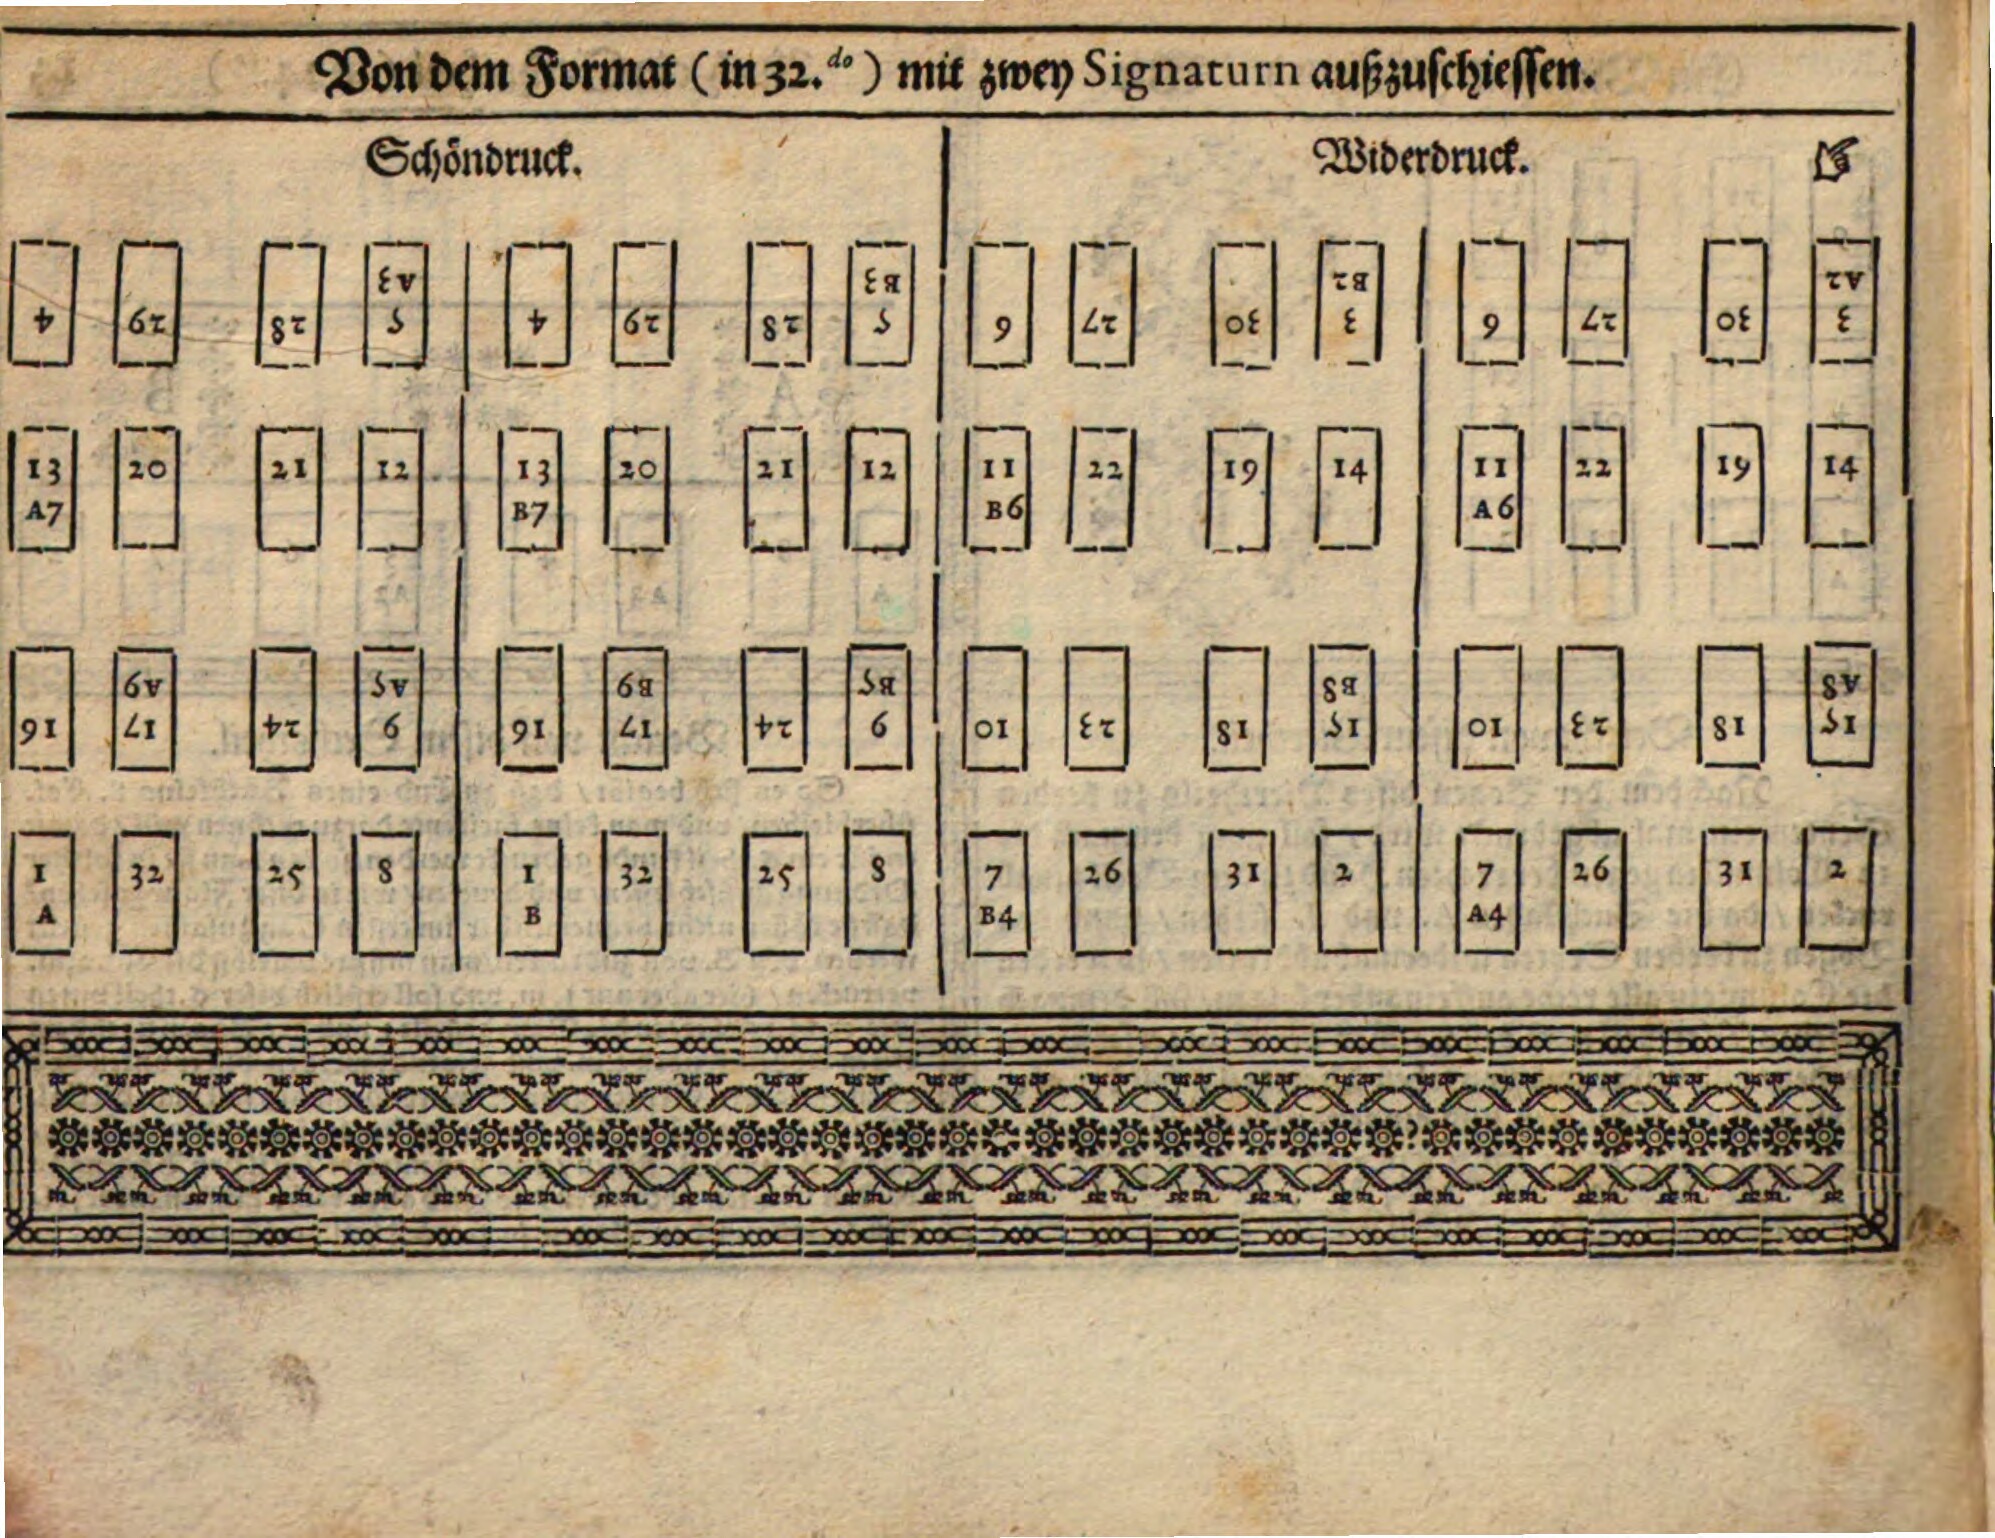 Von dem Format ( in 32.do ) mit zwey Signaturn außzuschiessen.
Schöndruck.
Widerdruck. ☞
A3 B3 B2 A2
4 29 28 5 4 29 28 5 6 27 30 3 6 27 30 3
13 20 21 12 13 20 21 12 11 22 19 14 11 22 19 14
A7 B7 B6 A6
A9 A5 B9 B5 B8 A8
16 17 24 9 16 17 24 9 10 23 18 15 10 23 18 15
1 32 25 8 1 32 25 8 7 26 31 2 7 26 31 2
A B B4 A4